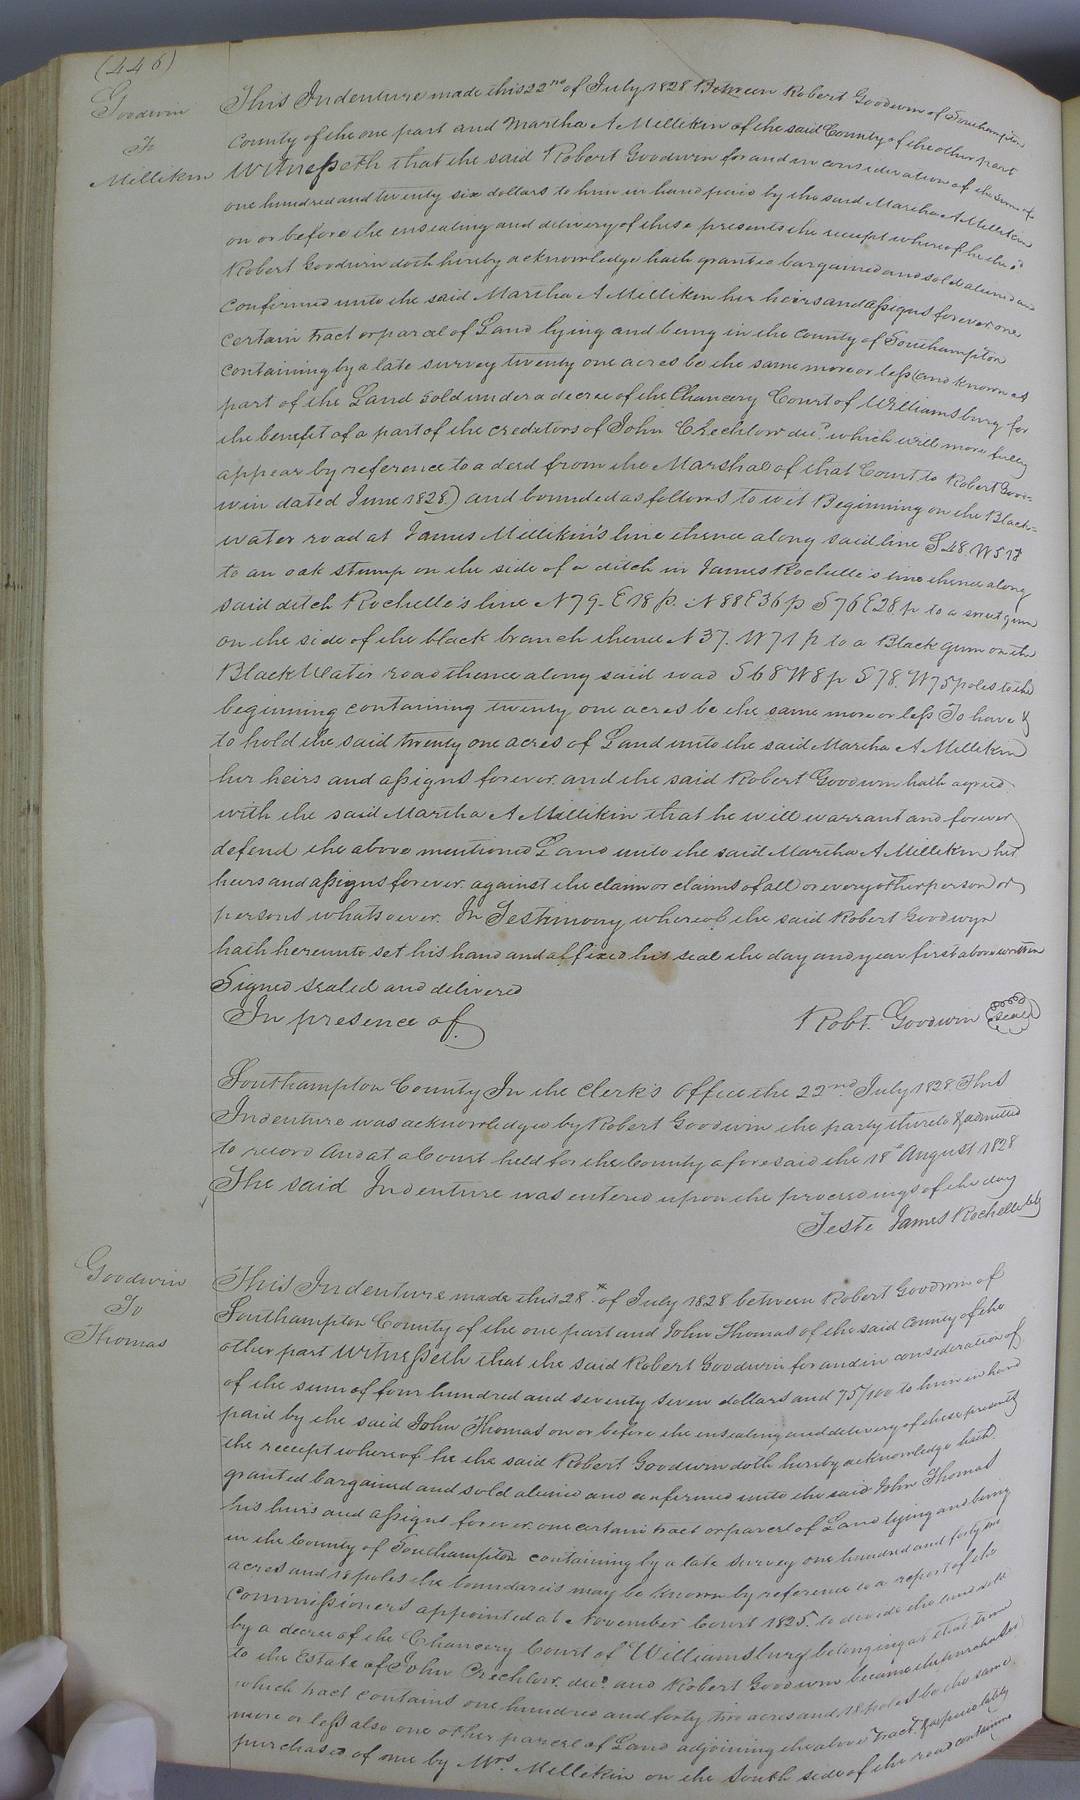 (446)
Goodwin
To
Millikin
This Indenture made this 22nd of July 1828 Between Robert Goodwin of Southampton
County of the one part and Martha A Millikin of the said County of the other part
Witnesseth that the said Robert Goodwin for and in consideration of the sum of
one hundred and twenty six dollars to him in hand paid by the said Martha A Millikin
on or before the ensealing and delivery of these presents the receipt whereof he the sd
Robert Goodwin doth hereby acknowledge hath granted bargained and sold aliened and
confirmed unto the said Martha A Millikin her heirs and assigns forever one
certain tract or parcel of Land lying and being in the County of Southampton
containing by a late survey twenty one acres be the same more or less (and known as
part of the Land sold under a decree of the Chancery Court of Williamsburg for
the benefit of a part of the creditors of John Crechlow decd. which will more fully
appear by reference to a deed from the Marshal of that Court to Robert Good=
win dated June 1828) and bounded as follows to wit Beginning on the Black=
water road at James Millikin's line thence along said line S 48. W 51 p
to an oak stump on the side of a ditch in James Rochelle's line thence along
said ditch Rochelle's line N 79. E 18 p. N 88 E 36 p S 76 E 28. p to a sweet gum
on the side of the black branch thence N 37. W 71 p to a Black gum on the
Black Water road thence along said road S 68 W 8 p S 78. W 75 poles to the
beginning containing twenty one acres be the same more or less To have &
to hold the said twenty one acres of Land unto the said Martha A Millikin
her heirs and assigns forever. and the said Robert Goodwin hath agreed
with the said Martha A Millikin that he will warrant and forever
defend the above mentioned Land unto the said Martha A Millikin her
heirs and assigns forever. against the claim or claims of all or every other person or
persons whatsoever. In Testimony whereof the said Robert Goodwyn
hath hereunto set his hand and affixed his seal the day and year first above written
Signed sealed and delivered
In presence of
Robt. Goodwin seal
Southampton County In the Clerk's Office the 22nd. July 1828 This
Indenture was acknowledged by Robert Goodwin the party thereto & admitted
to record And at a Court held for the County aforesaid the 18th August 1828
The said Indenture was entered upon the proceedings of the day
Teste James Rochelle clk
Goodwin
To
Thomas
This Indenture made this 28th of July 1828 between Robert Goodwin of
Southampton County of the one part and John Thomas of the said County of the
other part Witnesseth that the said Robert Goodwin for and in consideration of
of the sum of four hundred and seventy seven dollars and 75/100 to him in hand
paid by the said John Thomas on or before the ensealing and delivery of these presents
the receipt whereof he the said Robert Goodwin doth hereby acknowledge hath
granted bargained and sold aliened and confirmed unto the said John Thomas
his heirs and assigns forever. one certain tract or parcel of Land lying and being
in the County of Southampton containing by a late survey one hundred and forty two
acres and 18 poles the boundareis may be known by reference to a report of the
Commissioners appointed at November Court 1825. to devide the land sold
by a decree of the Chancery Court of Williamsburg belonging at that time
to the Estate of John Crechlow. decd. and Robert Goodwin became the purchaser
which tract contains one hundred and forty two acres and 18 poles be the same
more or less also one other parcel of Land adjoining the above tract. & a piece lately
purchased of me by Mrs. Millekin on the South side of the road containing